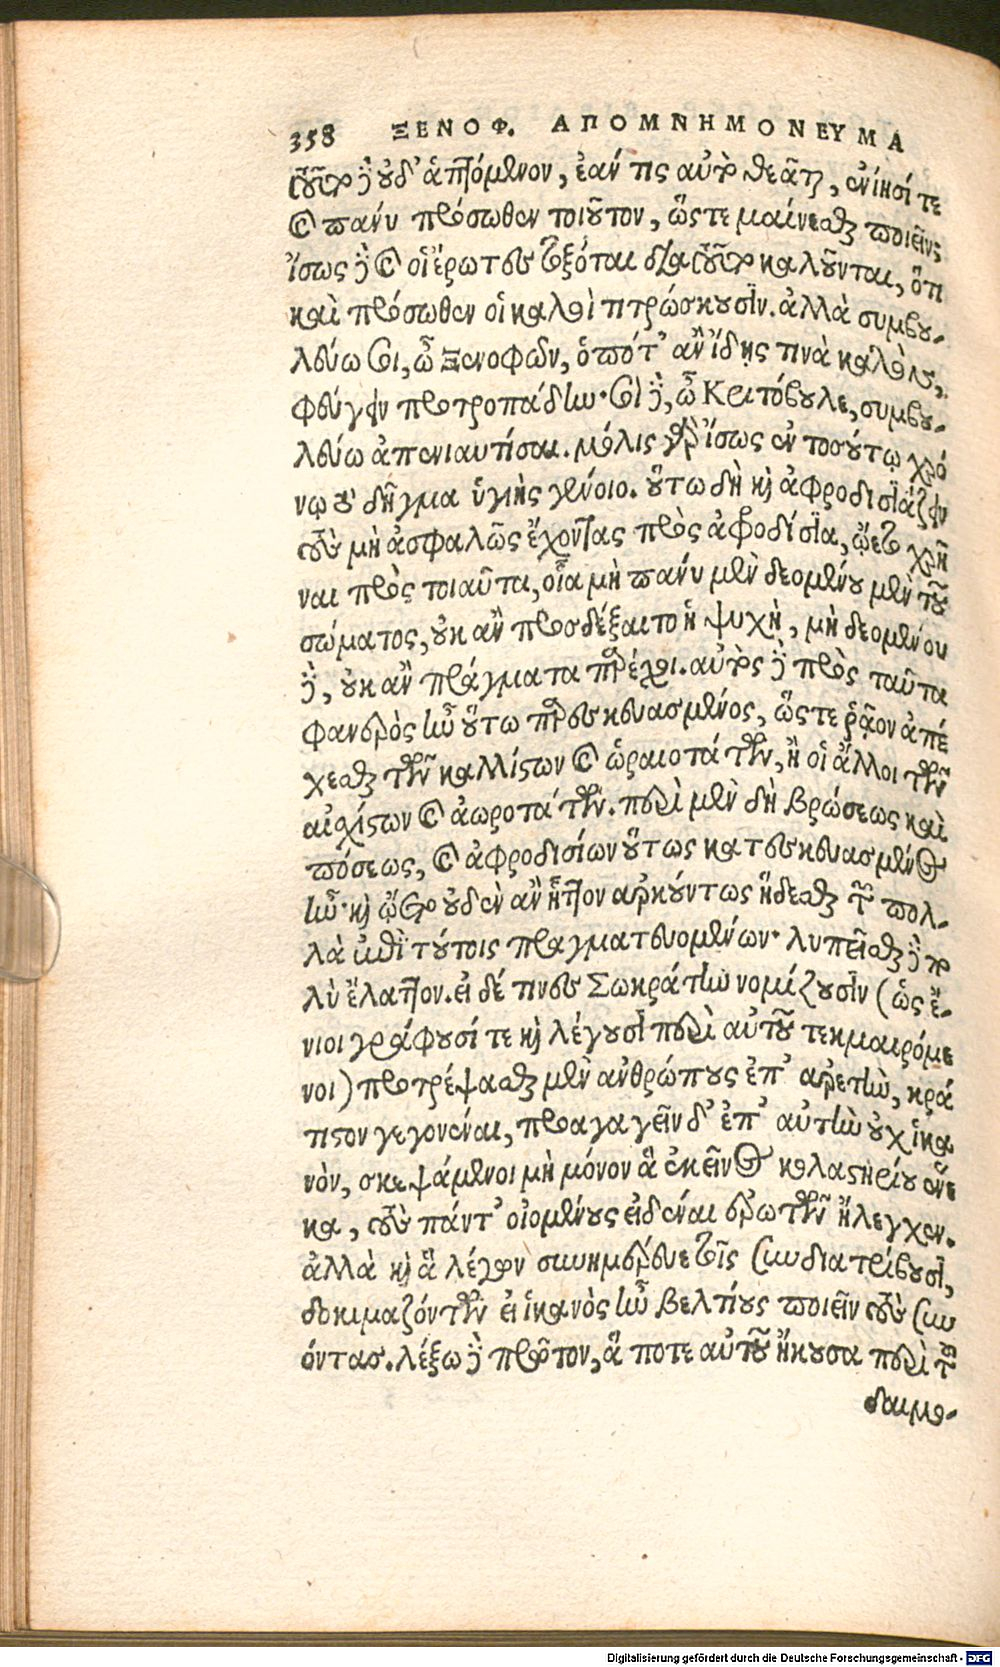 358 ΞΕΝΟΦ. ΑΠΟΜΝΗΜΟΝΕΥΜΑ
τοῦτο δὲ οὐδ' ἁπτόμενον, ἐάν τις αὐτὸ θεᾶται, ἐνίησί τε
καὶ πάνυ πρόσωθεν τοιοῦτον, ὥςτε μαίνεσθαι ποιεῖν· ς
ἴσως δὲ καὶ οἱ ἔρωτες τοξόται διὰ τοῦτο καλοῦνται, ὅτι
καὶ πρόσωθεν οἱ καλοὶ τιτρώσκουσιν. ἀλλὰ συμβου-
λεύω σοι, ὦ Ξενοφῶν, ὁπότ' ἂν ἴδῃς τινὰ καλὸν,
φεύγειν προτροπάδην· σοὶ δὲ, ὦ Κριτόβουλε, συμβου-
λεύω ἀπενιαυτίσαι. μόλις γὰρ ἴσως ἐν τοσούτῳ χρό
νῳ τὸ δῆγμα ὑγιὴς γένοιο. οὕτω δὴ καὶ ἀφροδισιάζειν
τοὺς μὴ ἀσφαλῶς ἔχοντας πρὸς ἀφροδίσια, ᾤετο χρῆ
ναι πρὸς τοιαῦτα, οἷα μὴ πάνυ μὲν δεομένου μὲν τοῦ
σώματος, οὐκ ἂν προσδέξαιτο ἡ ψυχὴ, μὴ δεομένου
δὲ, οὐκ ἂν πράγματα παρέχοι. αὐτὸς δὲ πρὸς ταῦτα
φανερὸς ἦν οὕτω παρεσκευασμένος, ὥςτε ῥᾷον ἀπέ
χεσθαι τῶν καλλίστων καὶ ὡραιοτάτων, ἢ οἱ ἄλλοι τῶν
αἰσχίστων καὶ ἀωροτάτων. περὶ μὲν δὴ βρώσεως καὶ
πόσεως, καὶ ἀφροδισίων οὕτως κατεσκευασμένος
ἦν· καὶ ᾤετο οὐδὲν ἂν ἧττον ἀρκούντως ἥδεσθαι τῶν πολ-
λὰ ἐπὶ τούτοις πραγματευομένων· λυπεῖσθαι δὲ πο
λὺ ἔλαττον. εἰ δέ τινες Σωκράτην νομίζουσιν (ὡς ἔ-
νιοι γράφουσί τε καὶ λέγουσι περὶ αὐτοῦ τεκμαιρόμε
νοι) προτρέψασθαι μὲν ἀνθρώπους ἐπ' ἀρετὴν, κρά
τιστον γεγονέναι, προαγαγεῖν δ' ἐπ' αὐτὴν οὐχ ἱκα
νὸν, σκεψάμενοι μὴ μόνον ἃ ἐκεῖνος κολαστηρίου ἕνε
κα, τοὺς πάντ' οἰομένους εἰδέναι ἐρωτῶν ἤλεγχεν.
ἀλλὰ καὶ ἃ λέγων συνημέρευε τοῖς συνδιατρίβουσι,
δοκιμαζόντων εἰ ἱκανὸς ἦν βελτίους ποιεῖν τοὺς συν
όντας. λέξω δὲ πρῶτον, ἅ ποτε αὐτοῦ ἤκουσα περὶ τοῦ
δαιμο-
Digitalisierung gefördert durch die Deutsche Forschungsgemeinschaft - DFG